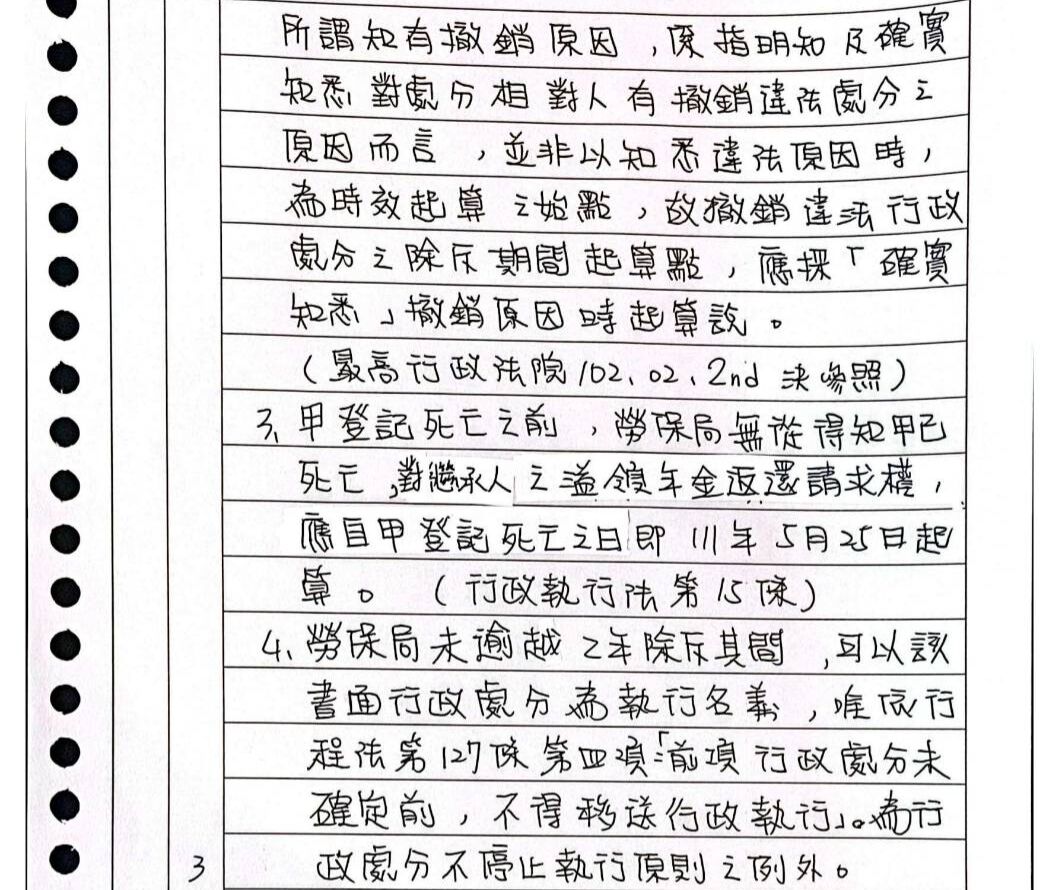 所謂知有撤銷原因，係指明知及確實
知悉對處分相對人有撤銷違法處分之
原因而言，並非以知悉違法原因時，
為時效起算之始點，故撤銷違法行政
處分之除斥期間起算點，應採「確實
知悉」撤銷原因時起算說。
（最高行政法院102.02.2nd決參照）
3.甲登記死亡之前，勞保局無從得知甲已
死亡，對繼承人之溢領年金返還請求權，
應自甲登記死亡之日即111年5月25日起
算。（行政執行法第15條）
4.勞保局未逾越2年除斥其間，可以該
書面行政處分為執行名義，唯依行
程法第127條第四項:「前項行政處分未
確定前，不得移送行政執行」。為行
3 政處分不停止執行原則之例外。